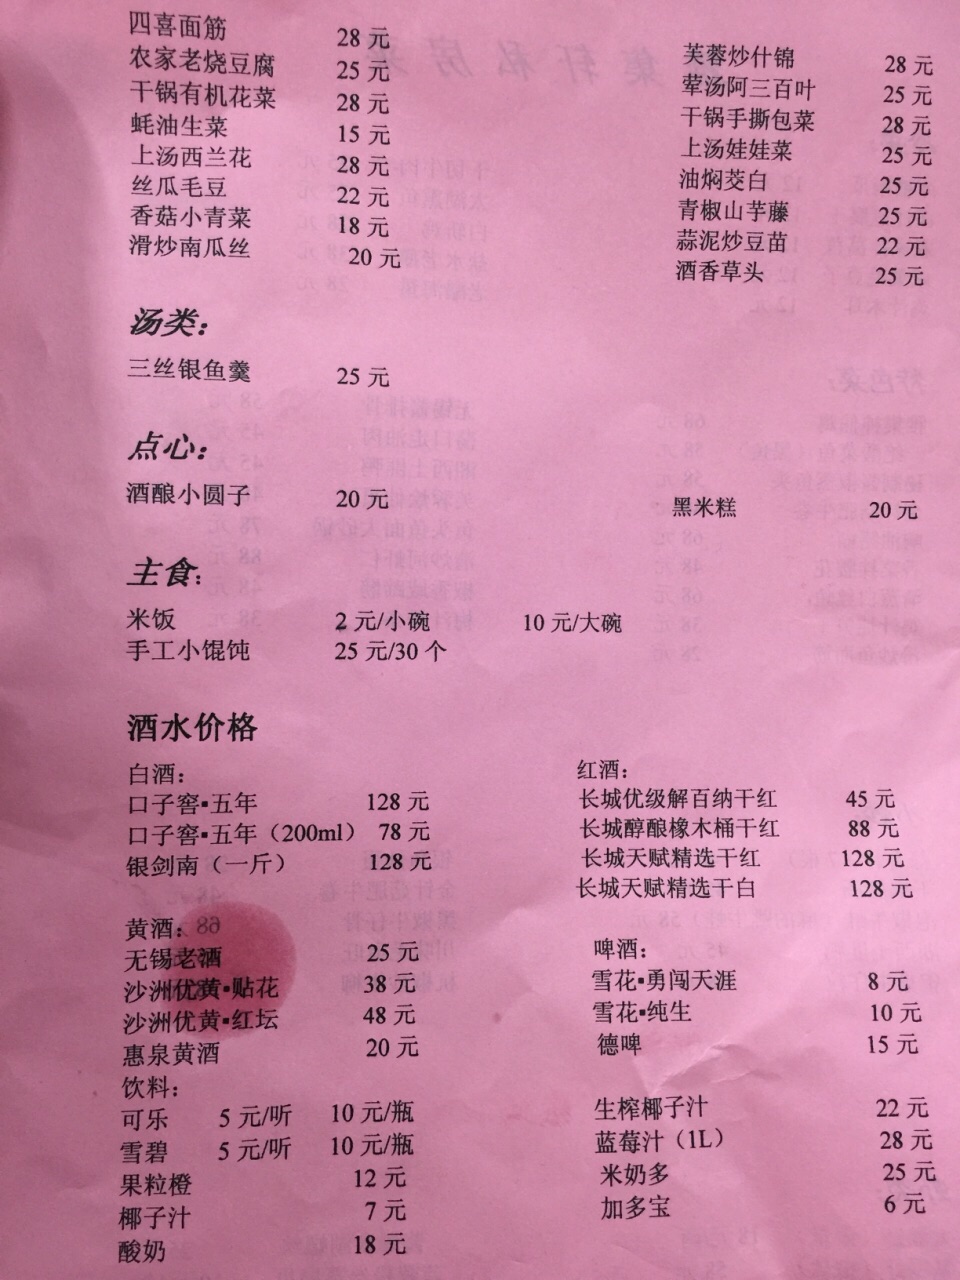 四喜面筋 28 元
农家老烧豆腐 25 元
干锅有机花菜 28 元
蚝油生菜 15 元
上汤西兰花 28 元
丝瓜毛豆 22 元
香菇小青菜 18 元
滑炒南瓜丝 20 元
芙蓉炒什锦 28 元
荤汤阿三百叶 25 元
干锅手撕包菜 28 元
上汤娃娃菜 25 元
油焖茭白 25 元
青椒山芋藤 25 元
蒜泥炒豆苗 22 元
酒香草头 25 元
汤类：
三丝银鱼羹 25 元
点心：
酒酿小圆子 20 元 黑米糕 20 元
主食：
米饭 2 元/小碗 10 元/大碗
手工小馄饨 25 元/30 个
酒水价格
白酒：
口子窖▪五年 128 元
口子窖▪五年（200ml） 78 元
银剑南（一斤） 128 元
红酒：
长城优级解百纳干红 45 元
长城醇酿橡木桶干红 88 元
长城天赋精选干红 128 元
长城天赋精选干白 128 元
黄酒：
无锡老酒 25 元
沙洲优黄▪贴花 38 元
沙洲优黄▪红坛 48 元
惠泉黄酒 20 元
啤酒：
雪花▪勇闯天涯 8 元
雪花▪纯生 10 元
德啤 15 元
饮料：
可乐 5 元/听 10 元/瓶
雪碧 5 元/听 10 元/瓶
果粒橙 12 元
椰子汁 7 元
酸奶 18 元
生榨椰子汁 22 元
蓝莓汁（1L） 28 元
米奶多 25 元
加多宝 6 元